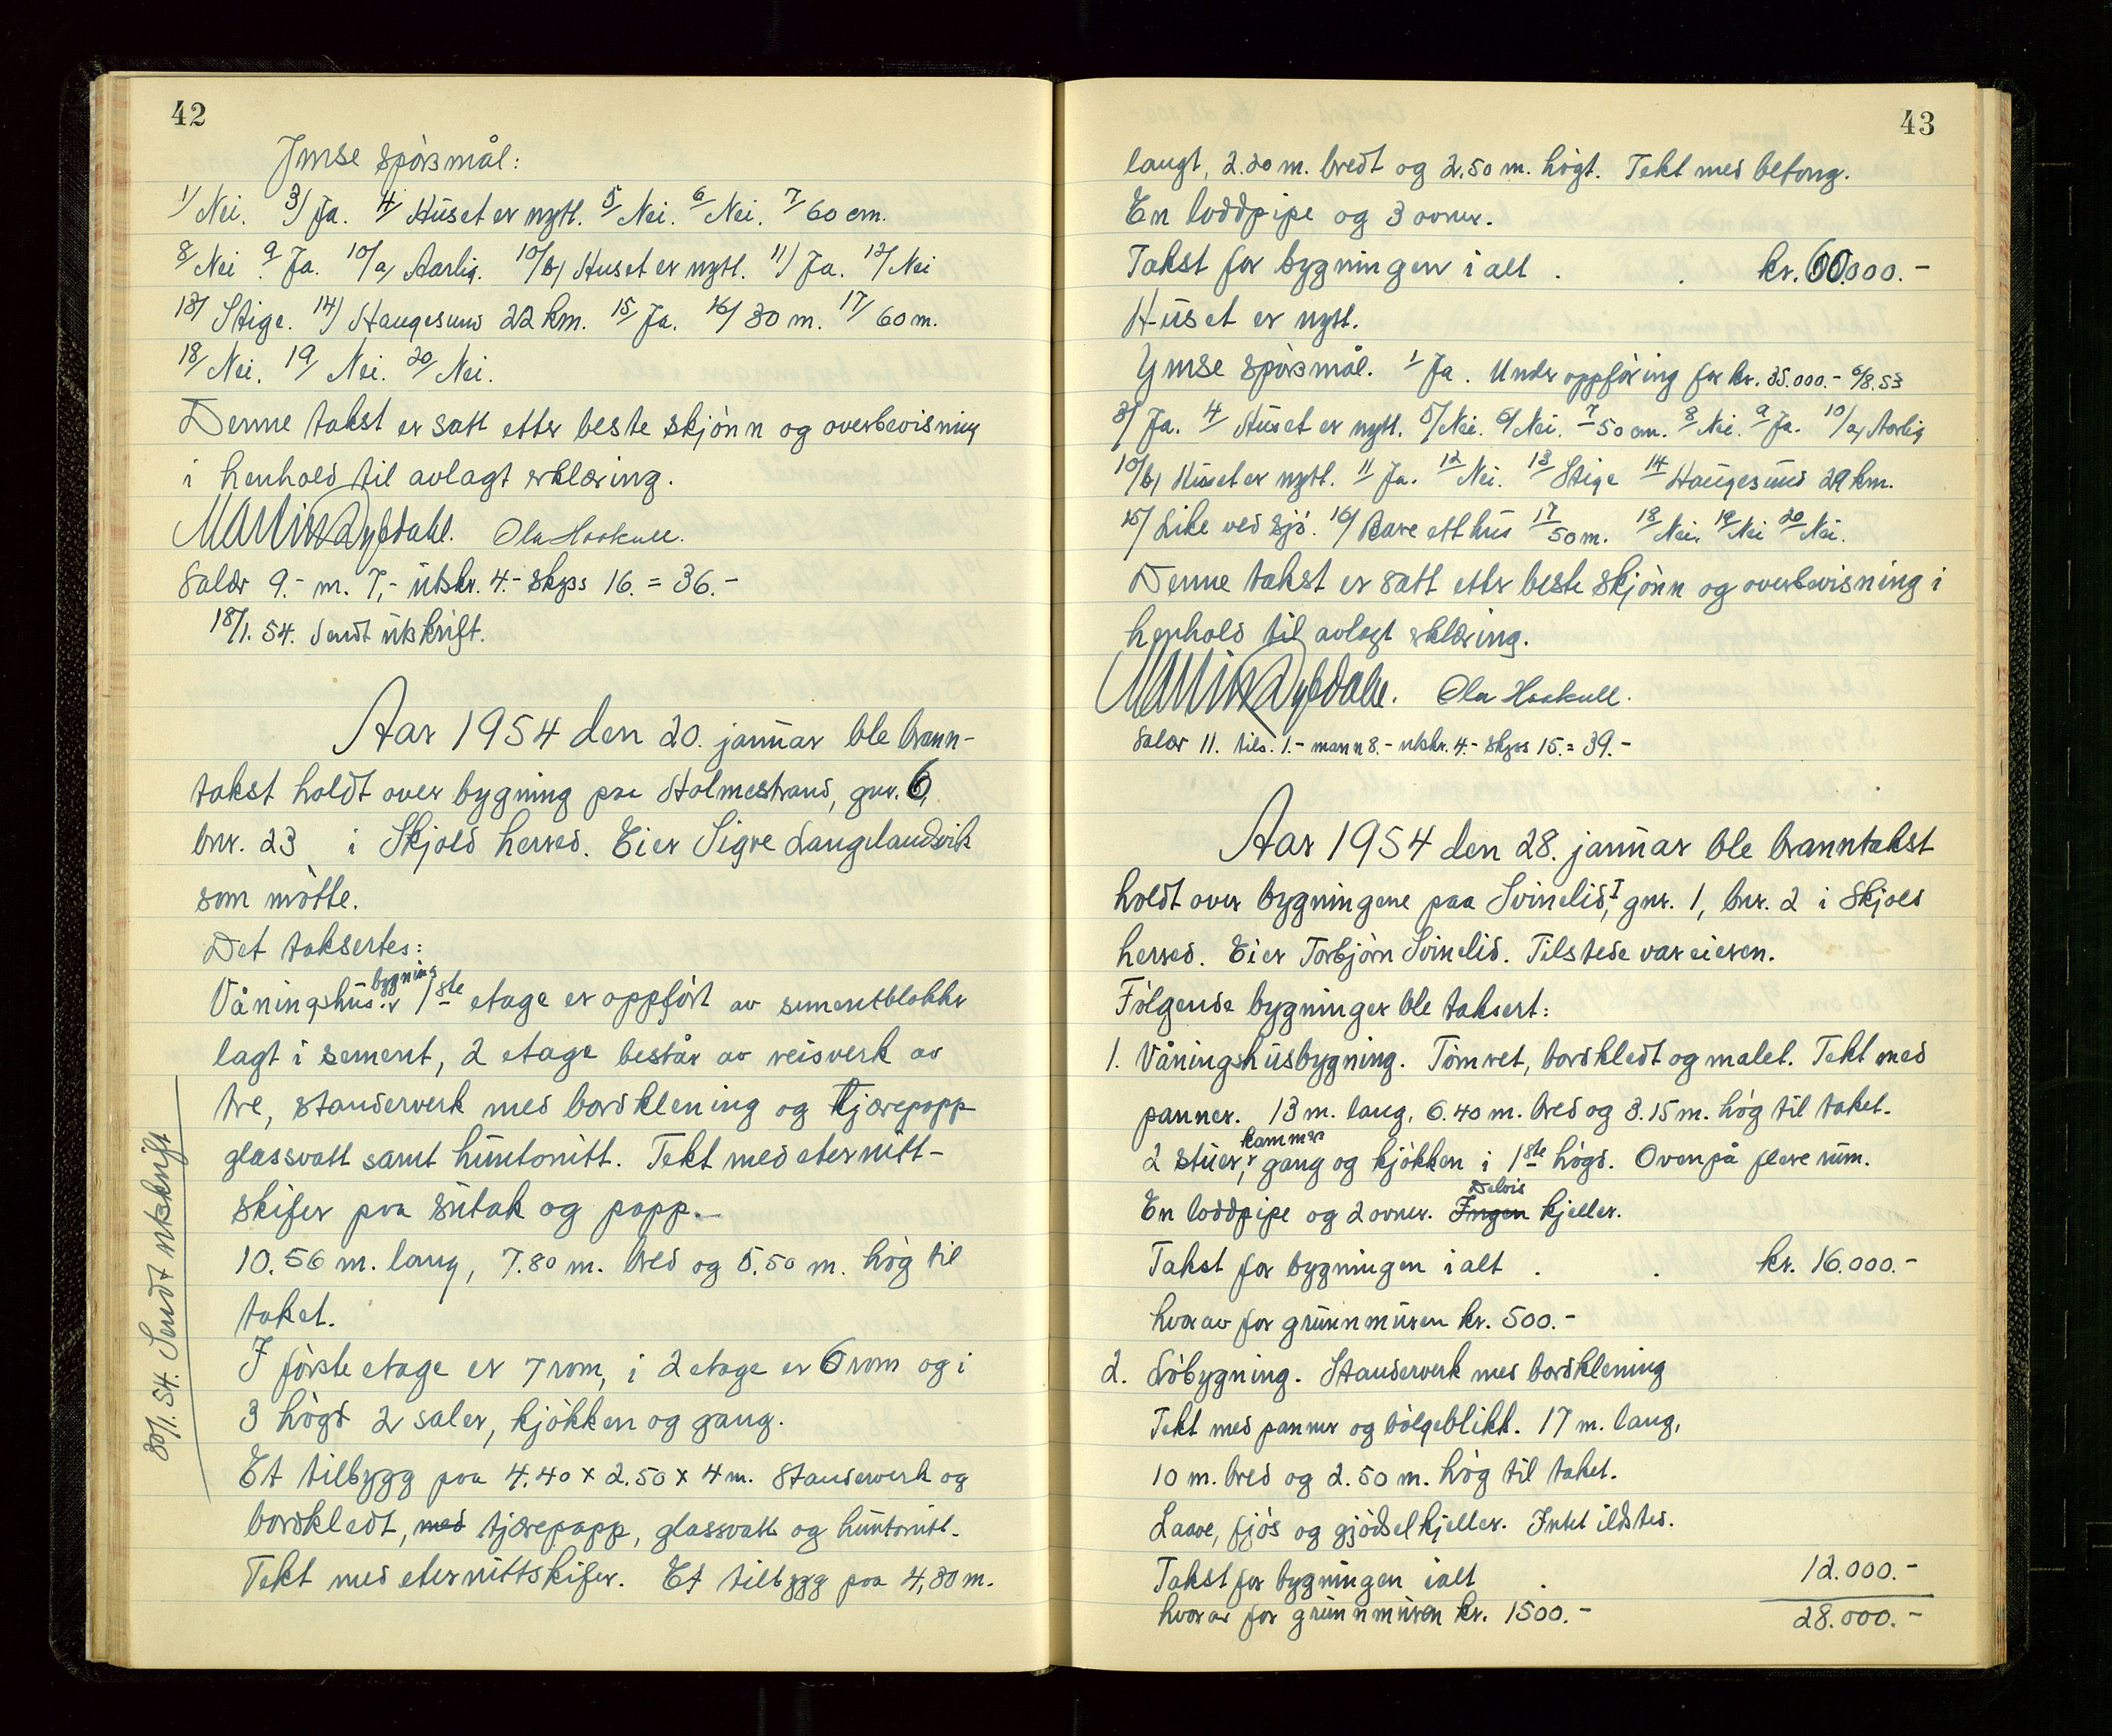 42
Ymse spörsmål:
1/ Nei. 3/ Ja. 4/ Huset er nytt. 5/ Nei. 6/ Nei. 7/ 60 cm.
8/ Nei. 9/ Ja. 10/a, Aarlig. 10/b, Huset er nytt. 11/ Ja. 12/ Nei
13/ Stige. 14/ Haugesund 22 km. 15/ Ja. 16/ 30 m. 17/ 60 m.
18/ Nei. 19/ Nei. 20/ Nei.
Denne takst er satt etter beste skjönn og overbevisning
i henhold til avlagt erklæring.
Martin Dybdahl. Ola Haakull.
Salær 9.- m. 7,- utskr. 4.- skyss 16. = 36.-
18/1. 54. Sendt utskrift.
Aar 1954 den 20. januar ble brann-
takst holdt over bygning paa Holmestrand, gnr. 6,
bnr. 23 i Skjold herred. Eier Sigve Langelandsvik
som mötte.
Det taksertes:
bygning
Våningshus. 1ste etage er oppfört av sementblokker
lagt i sement, 2 etage består av reisverk av
tre, standerverk med bordklening og tjærepapp
glassvatt samt huntonitt. Tekt med eternitt-
skifer paa sutak og papp.
10.56 m. lang, 7.80 m. bred og 5.50 m. hög til
taket.
I förste etage er 7 rom, i 2 etage er 6 rom og i
3 högd 2 saler, kjökken og gang.
Et tilbygg paa 4.40 x 2.50 x 4 m. Standerverk og
bordkledt, med tjærepapp, glassvatt og huntonitt.
Tekt med eternittskifer. Et tilbygg paa 4,80 m.
30/1. 54. Sendt utskrift
43
langt, 2.20 m. bredt og 2.50 m. högt. Tekt med betong.
En loddpipe og 3 ovner.
Takst for bygningen i alt . . kr. 60.000.-
Huset er nytt.
Ymse spörsmål. 1/ Ja. Under oppföring for kr. 35.000.- 6/8. 53
3/ Ja. 4/ Huset er nytt. 5/ Nei. 6/ Nei. 7/ 50 cm. 8/ Nei. 9/ Ja. 10/a, Aarlig
10/b, Huset er nytt. 11/ Ja. 12/ Nei. 13/ Stige 14/ Haugesund 29 km.
15/ Like ved sjö. 16/ Bare ett hus 17/ 50 m. 18/ Nei. 19/ Nei 20/ Nei.
Denne takst er satt etter beste skjönn og overbevisning i
henhold til avlagt erklæring.
Martin Dybdahl. Ola Haakull.
Salær 11. tils. 1.- mann 8.- utskr. 4.- skyss 15. = 39.-
Aar 1954 den 28. januar ble branntakst
holdt over bygningene paa Svinelid, I gnr. 1, bnr. 2 i Skjold
herred. Eier Torbjörn Svinelid. Tilstede var eieren.
Fölgende bygninger ble taksert:
1. Våningshusbygning. Tömret, bordkledt og malet. Tekt med
panner. 13 m. lang, 6.40 m. bred og 3.15 m. hög til taket.
kammer
2 stuer, gang og kjökken i 1ste högd. Ovenpå flere rum.
Delvis
En loddpipe og 2 ovner. Ingen kjeller.
Takst for bygningen ialt . . kr. 16.000.-
hvorav for grunnmuren kr. 500.-
2. Löbygning. Standerverk med bordklening
Tekt med panner og bölgeblikk. 17 m. lang,
10 m. bred og 2.50 m. hög til taket.
Laave, fjös og gjödselkjeller. Intet ildsted.
Takst for bygningen ialt . 12.000.-
hvorav for grunnmuren kr. 1500.- 28.000.-